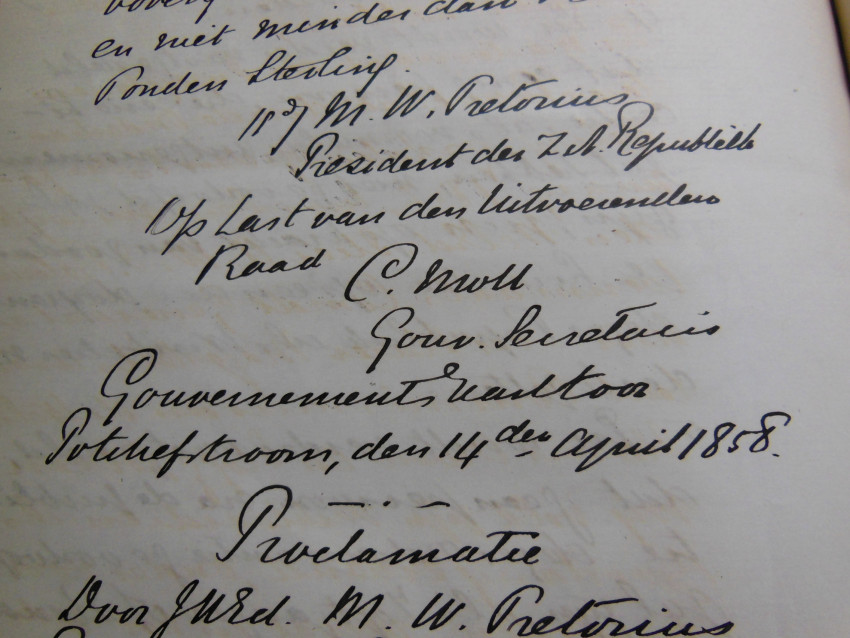 en niet minder dan
Ponden Sterling.
M. W. Pretorius
President der Z A Republiek
Op Last van den Uitvoerenden
Raad C. Moll
Gouv. Secretaris
Gouvernements Kantoor
Potchefstroom, den 14 den April 1858.
Proclamatie
Door ZHEd. M. W. Pretorius